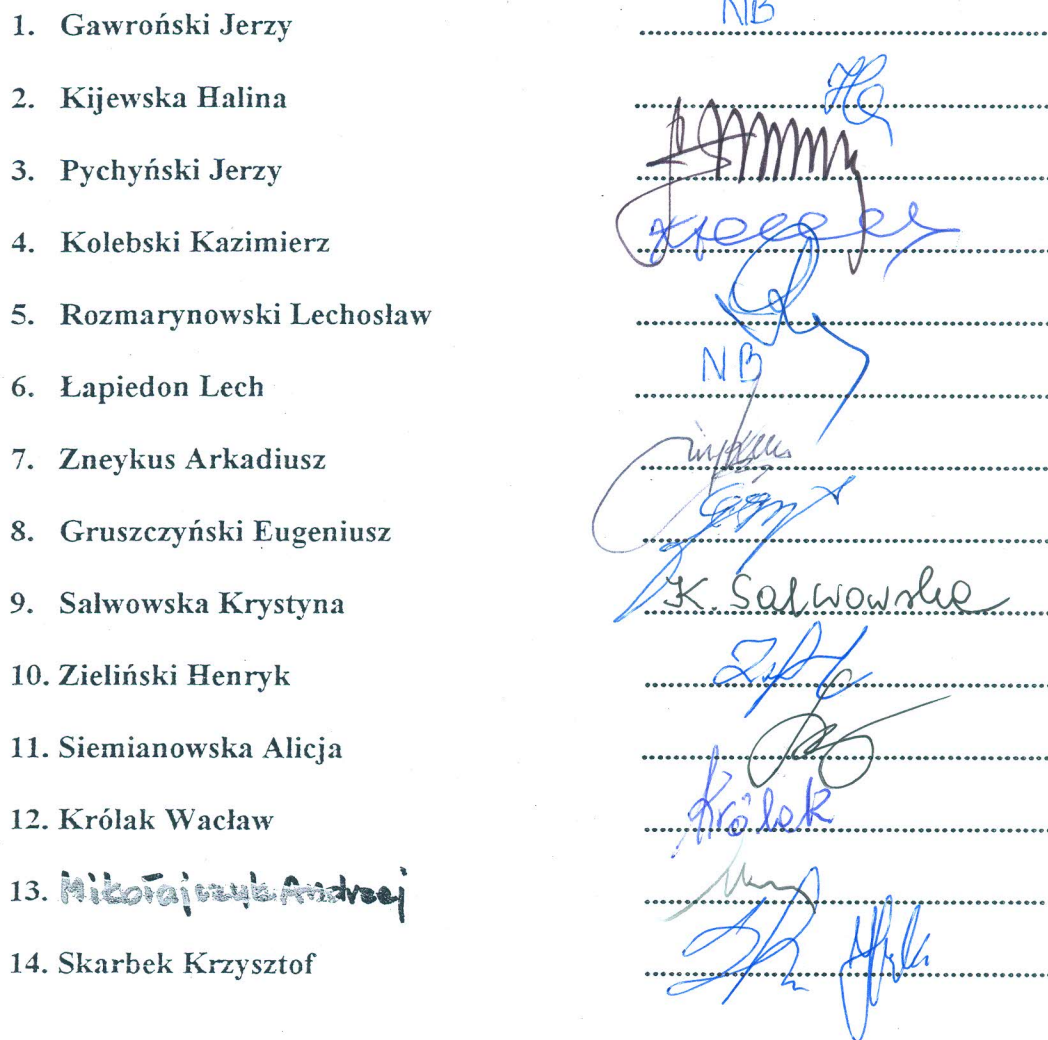 1. Gawroński Jerzy NB
2. Kijewska Halina
3. Pychyński Jerzy
4. Kolebski Kazimierz
5. Rozmarynowski Lechosław
6. Łapiedon Lech NB
7. Zneykus Arkadiusz
8. Gruszczyński Eugeniusz
9. Salwowska Krystyna K. Salwowska
10. Zieliński Henryk
11. Siemianowska Alicja
12. Królak Wacław Królak
13. Mikołajczyk Andrzej
14. Skarbek Krzysztof